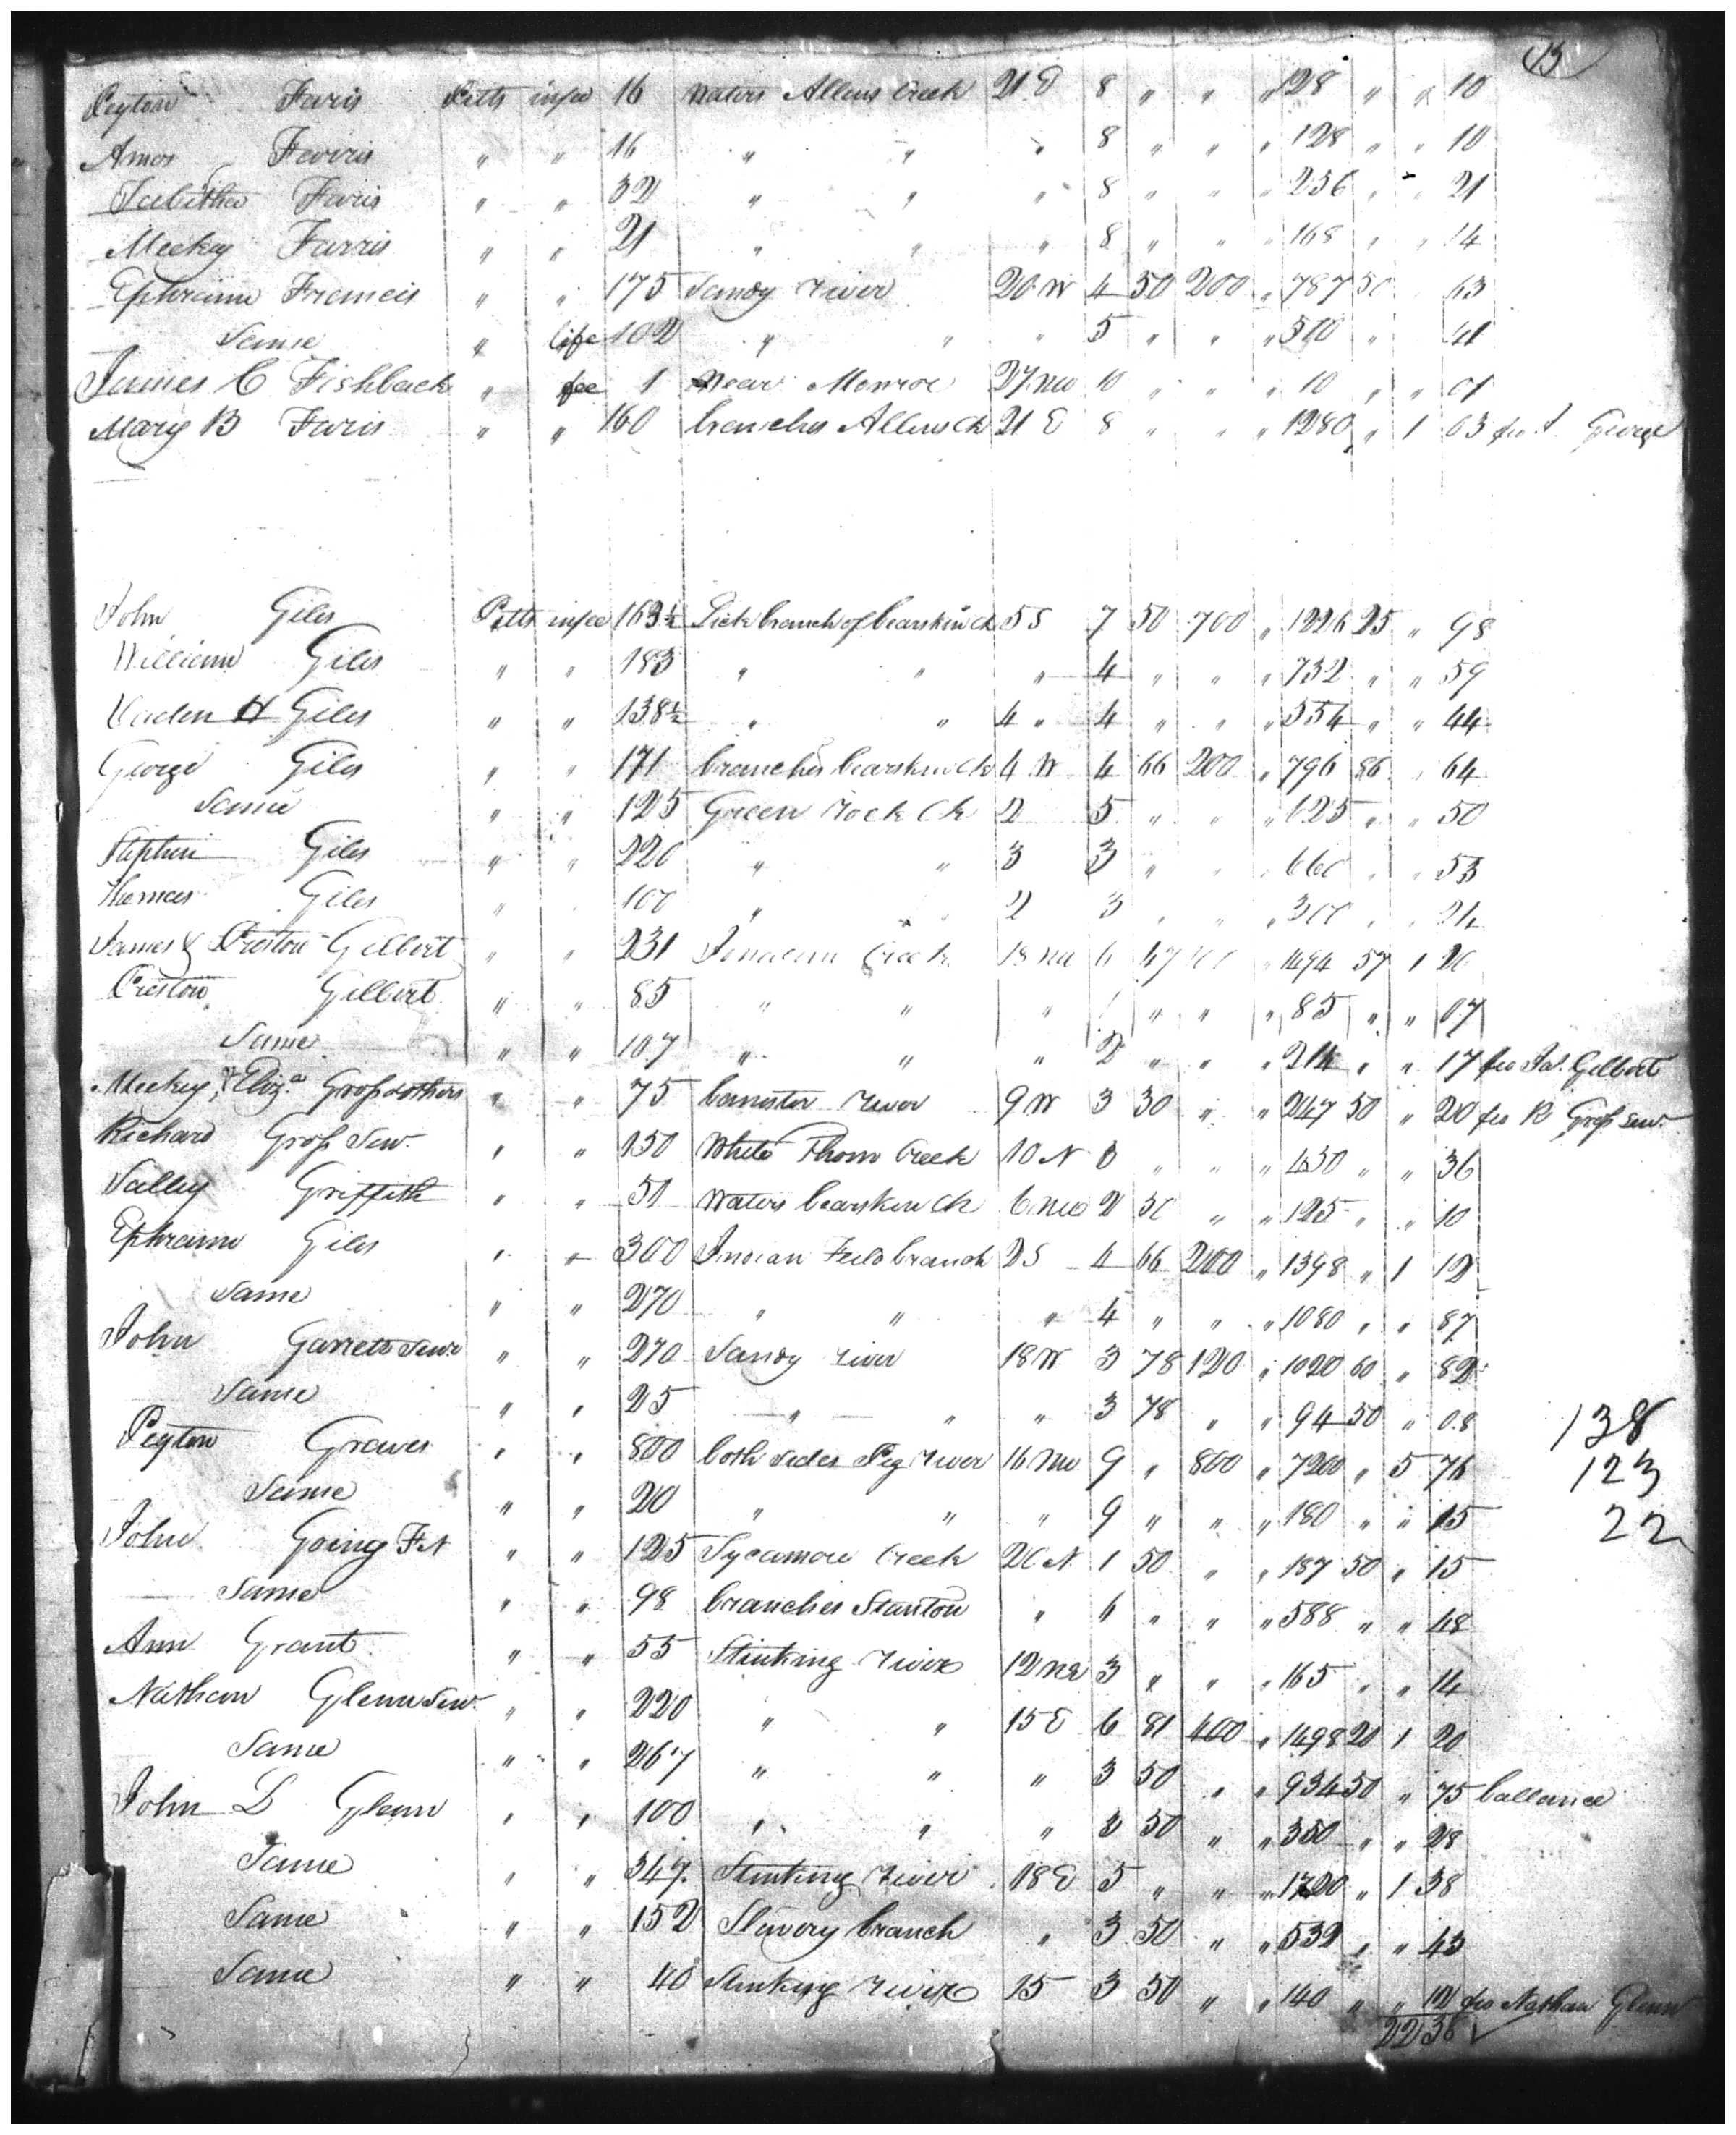 13
Peyton Faris Pitts in fee 16 Waters Allens Creek 21 E 8 " " " 128 " " 10
Amos Farris " " 16 " " " 8 " " " 128 " " 10
Tabitha Faris " " 32 " " " 8 " " " 256 " " 21
Meekey Farris " " 21 " " " 8 " " " 168 " " 14
Ephraim Francis " " 175 Sandy river 20 W 4 50 200 " 787 50 63
Same " life 102 " " " 5 " " " 510 " 41
James C Fishback " fee 1 Near Monroe 27 NW 10 " " " 10 " " 01
Mary B Faris " " 160 branches Allens Ck 21 E 8 " " " 1280 " 1 03 George
John Giles Pitts in fee 163½ Lick branch of bearskin Ck 5 S 7 50 700 " 1226 25 " 98
William Giles " " 183 " " " 4 " " " 732 " " 59
Vaden H Giles " " 138½ " " 4 " 4 " " " 554 " " 44
George Giles " " 171 branches bearskin Ck 4 W 4 66 200 " 796 86 " 64
Same " " 125 Green rock Ck 2 5 " " " 625 " " 50
Stephen Giles " " 220 " " 3 3 " " " 660 " " 53
Thomas Giles " " 100 " " 2 3 " " " 300 " " 24
James & Preston Gilbert " " 231 Creek 6 47 " 1494 57 1 20
Preston Gilbert " " 85 " " " 1 " " " 85 " " 07
Same " " 107 " " " 2 " " " 214 " " 17 fro Jas. Gilbert
Meekey, & Eliz.a Gross & others " " 75 banister river 9 W 3 30 " " 247 50 " 20 fro R Gross Sen.
Richard Gross Sen. " " 150 White Thorn Creek 10 N 3 " " " 450 " " 36
Salley Griffith " " 50 Waters bearskin Ck 6 NW 2 50 " " 125 " " 10
Ephraim Giles " " 300 Indian Field branch 2 S 4 66 200 " 1398 " 1 12
Same " " 270 " " " 4 " " " 1080 " " 87
John Garrett Senr " " 270 Sandy river 18 W 3 78 120 " 1020 60 " 82
Same " " 25 " " " 3 78 " " 94 50 " 08
138
Peyton Graves " " 800 both sides Pig river 16 NW 9 " 800 " 7200 " 5 76
123
Same " " 20 " " " 9 " " " 180 " " 15
22
John Going F N " " 125 Sycamore Creek 20 N 1 50 " " 187 50 " 15
Same " " 98 branches Stanton " 6 " " " 588 " " 48
Ann Grant " " 55 Stinking river 12 NE 3 " " " 165 " " 14
Nathan Glenn Sen. " " 220 " " 15 E 6 81 400 " 1498 20 1 20
Same " " 267 " " " 3 50 " " 934 50 " 75 ballance
John D Glenn " " 100 " " " 3 50 " " 350 " " 28
Same " " 347 Stinking river 18 E 5 " " " 1720 " 1 38
Same " " 152 branch " 3 50 " " 532 " " 43
Same " " 40 Stinking river 15 3 50 " " 140 " " 12 fro Nathan Glenn
22 38